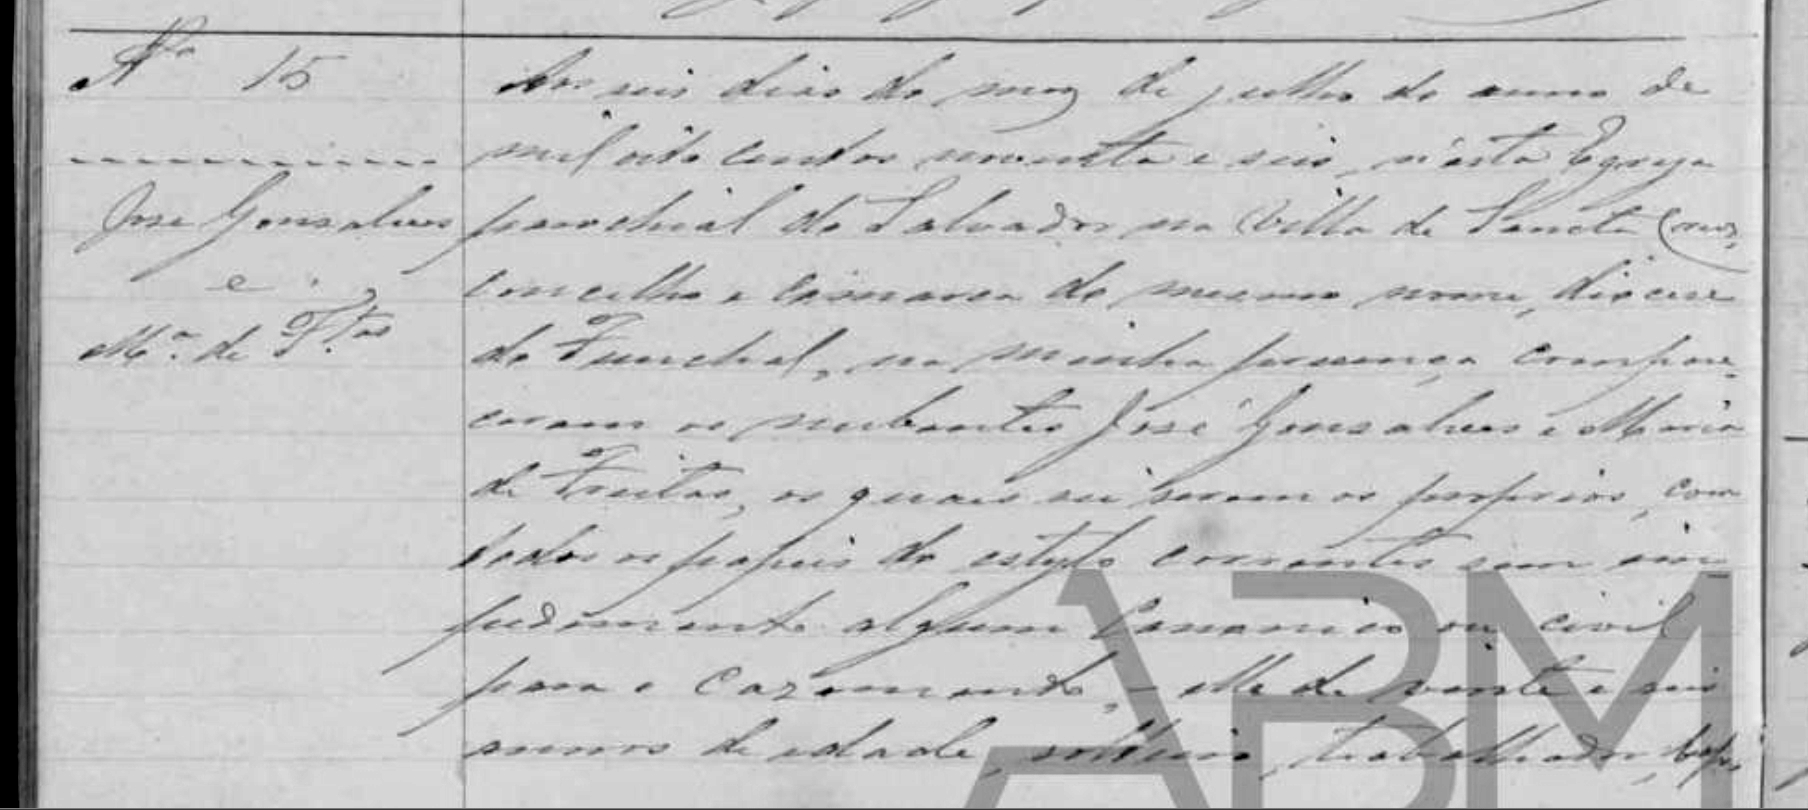 Nº 15
José Gonsalves
e
Mª. de F.tas
Aos seis dias do mez de julho do anno de
mil oito centos noventa e seis, n'esta Egreja
parochial do Salvador na Villa de Sancta Cruz,
concelho e comarca do mesmo nome, diocese
do Funchal, na minha presença compare-
ceram os nubentes José Gonsalves e Maria
de Freitas, os quais sei serem os proprios, com
todos os papeis do estylo correntes sem im
pedimento algum canonico ou civil
para o cazamento, - elle de vinte e seis
annos de edade, solteiro, trabalhador, bapti
ABM